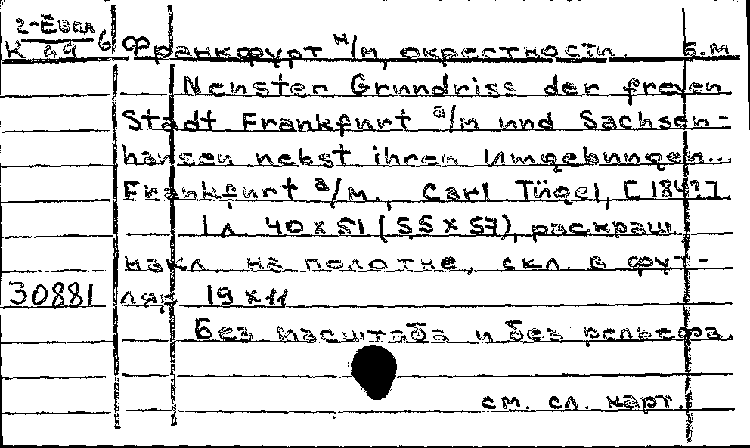 2-Евва
К 6
Франкфурт н/м, окрестности. Б.М
Neuster Grundriss der freyen
Stadt Frankfurt a/m und Sachsen-
hausen nebst ihren Umgebungen...
Frankfurt a/m., Carl Tügel, [184?]
1 л. 40 x 51 (55 x 57), раскраш.
накл. на полотне, скл. в фут-
30881 ляр 19 x 11
Без масштаба и без рельефа.
см. сл. карт.